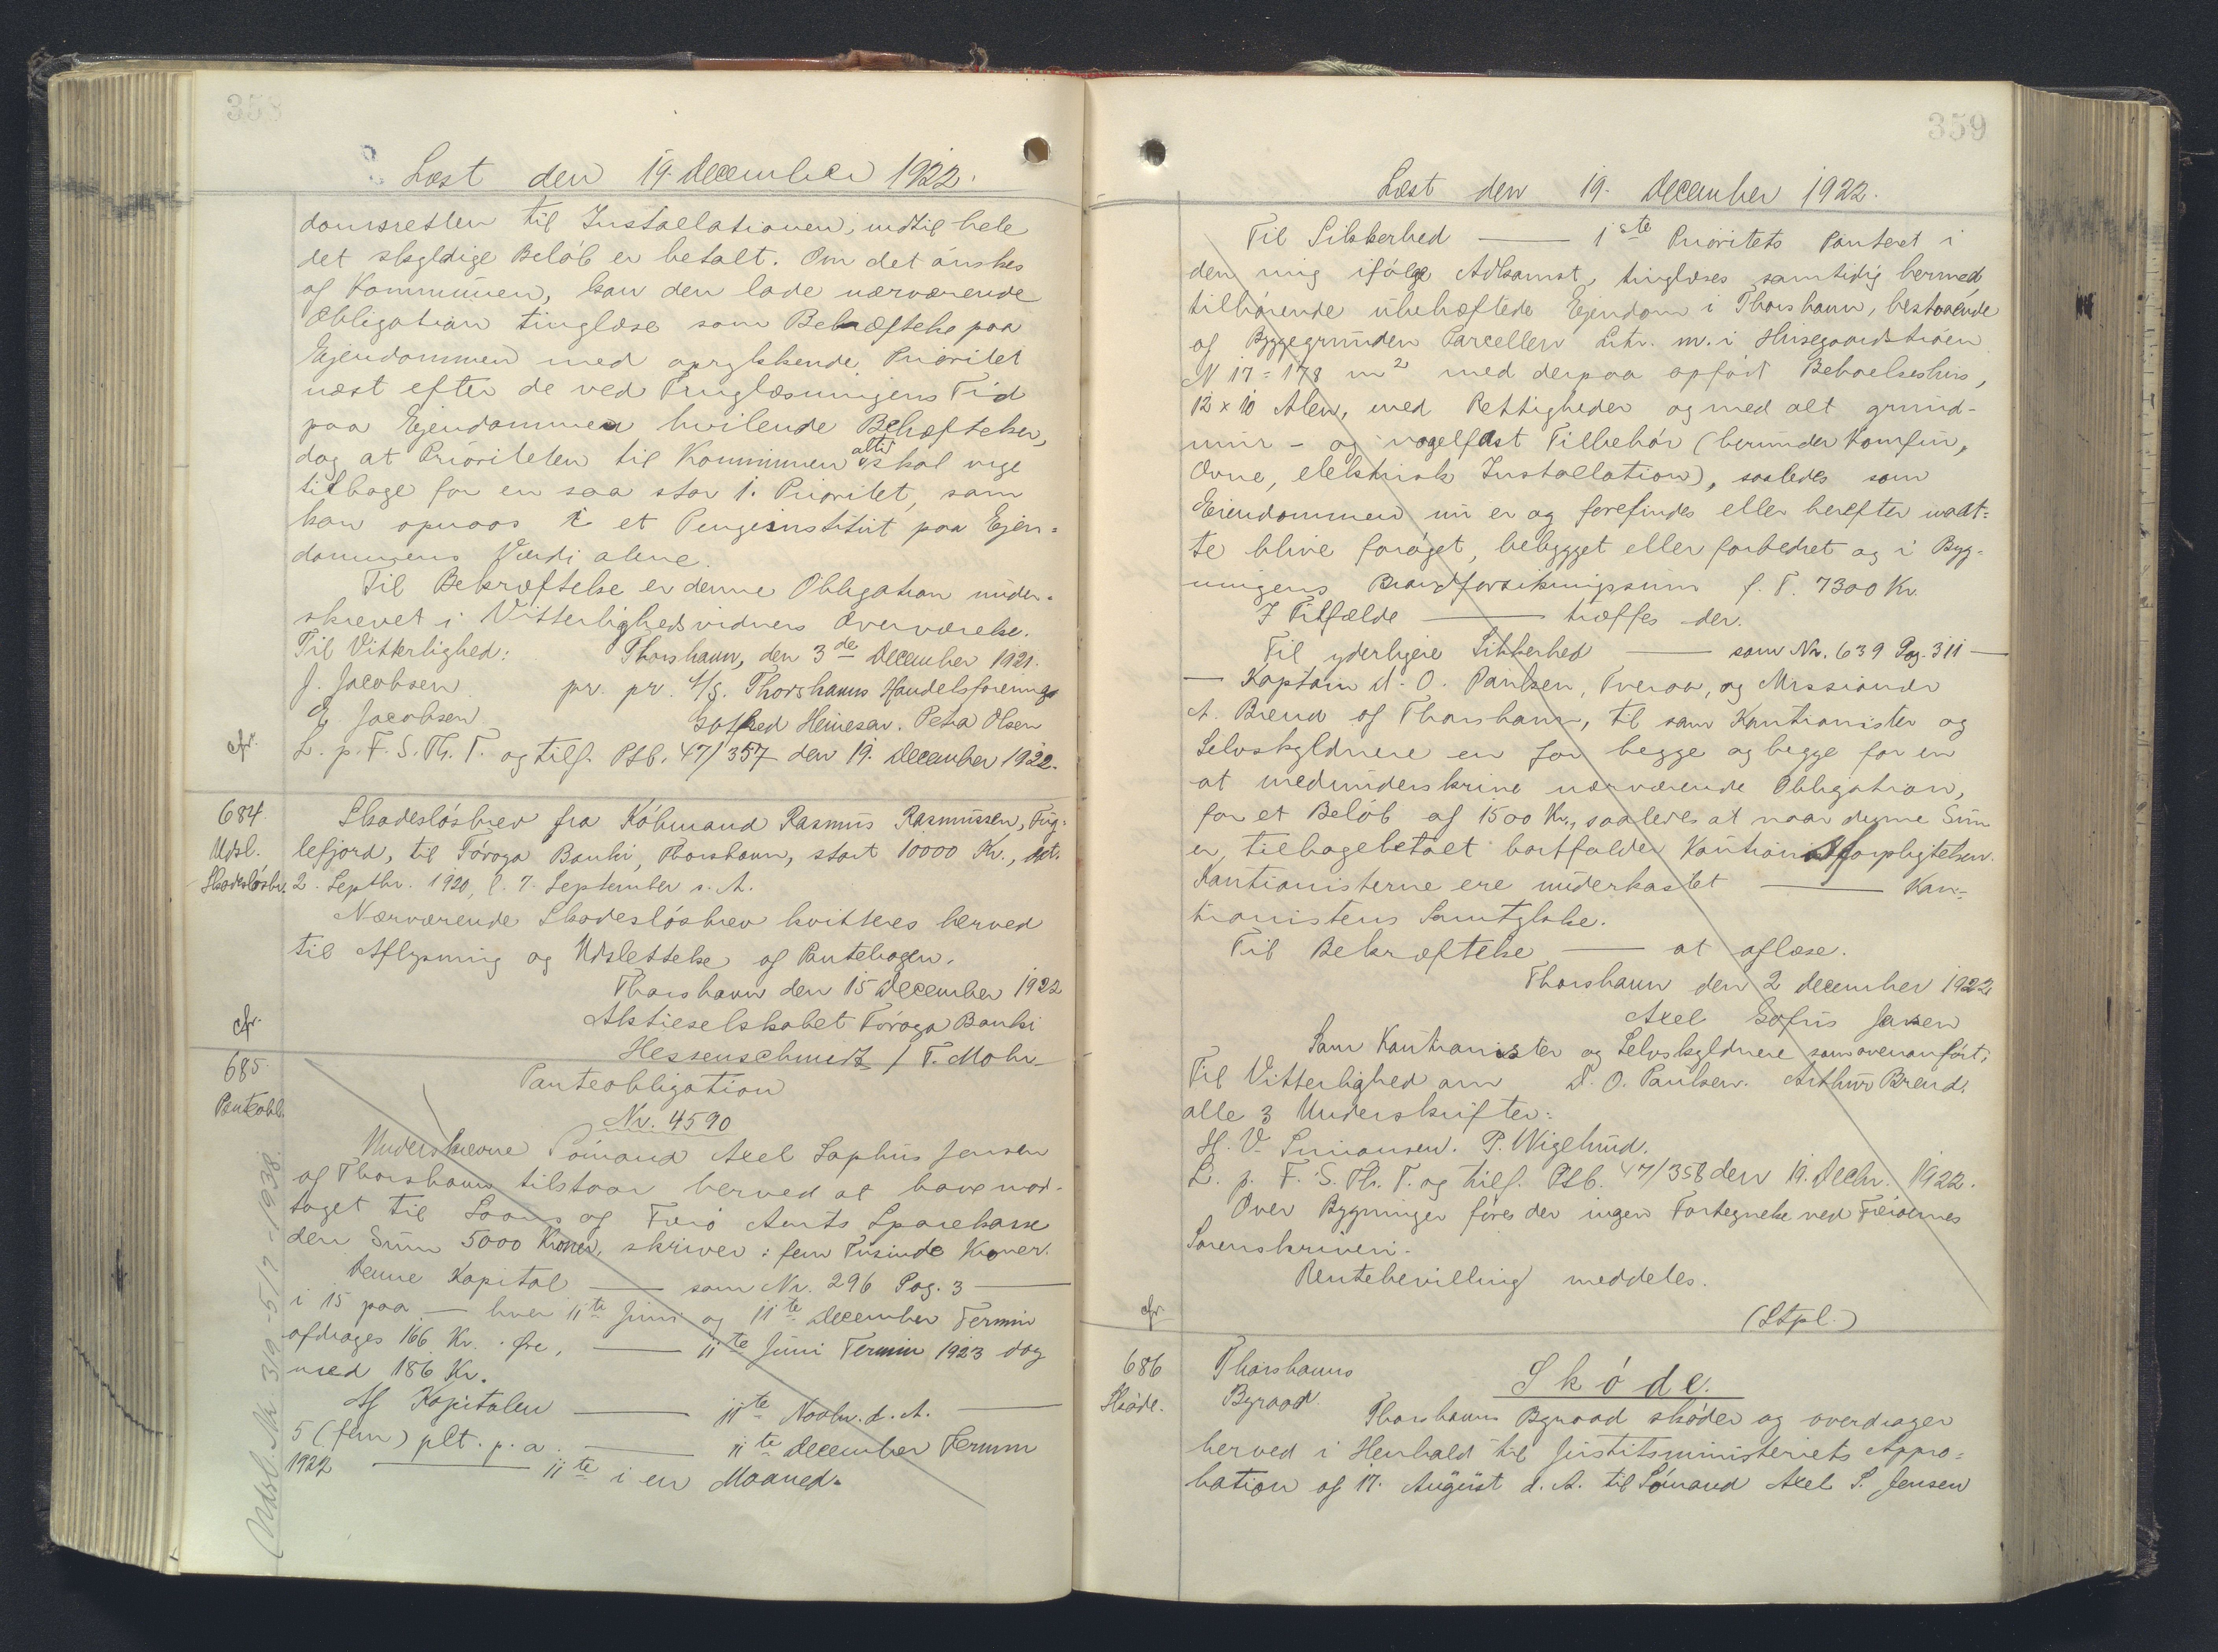 358
Læst den 19. December 1922.
domsretten til Installationen, indtil hele
det skyldige Beløb er betalt. Om det ønskes
af Kommunen, kan den lade nærværende
Obligation tinglæse som Behæftelse paa
Ejendommen med oprykkende Prioritet
næst efter de ved Tinglæsningens Tid
paa Ejendommen hvilende Behæftelser,
dog at Prioriteten til Kommunen altid skal vige
tilbage for en saa stor 1. Prioritet, som
kan opnaas i et Pengeinstitut paa Ejen=
dommens Værdi alene.
Til Bekræftelse er denne Obligation under-
skrevet i Vitterlighedsvidners Overværelse.
Til Vitterlighed: Thorshavn, den 3de December 1921.
J. Jacobsen pr. pr. A/S. Thorshavns Handelsforening
E. Jacobsen Gotfred Heinesen. Petra Olsen
cfr. L. p. F. S. Th. T. og tilf. Ptb. 47/357 den 19. December 1922.
684. Skadesløsbrev fra Købmand Rasmus Rasmussen, Fug=
Udsl. lefjord, til Føroya Banki, Thorshavn, stort 10000 Kr., dat.
Skadesløsbr. 2. Septbr. 1920, l. 7. September s. A.
Nærværende Skadesløsbrev kvitteres herved
til Aflysning og Udslettelse af Pantebogen.
Thorshavn den 15 December 1922
Aktieselskabet Føroya Banki
cfr. Hessenschmidt / T. Mohr
685. Panteobligation
Panteobl. Nr. 4590
Underskrevne Sømand Axel Sophus Jensen
af Thorshavn tilstaar herved at have mod-
taget til Laans af Færø Amts Sparekasse
den Sum 5000 Kroner, skriver: fem Tusinde Kroner.
Denne Kapital — som Nr. 296 Pag. 3 —
i 15 paa — hver 11te Juni og 11te December Termin
afdrages 166 Kr. . Øre, — 11te Juni Termin 1923 dog
med 186 Kr.
Af Kapitalen — 11te Novbr. d. A. —
5 (fem) pCt. p. a. — 11te December Termin
1922 — 11te i en Maaned.
Udsl. Nr. 319 - 5/7 - 1938.
359
Læst den 19. December 1922.
Til Sikkerhed — 1ste Prioritets Panteret i
den mig ifølge Adkomst, tinglæses samtidig hermed,
tilhørende ubehæftede Ejendom i Thorshavn, bestaaende
af Byggegrunden Parcellen Litr. m. i Husegaardstrøen
N 17 = 178 m2 med derpaa opført Beboelseshus,
12 x 10 Alen, med Rettigheder og med alt grund-
mur- og nagelfast Tilbehør (herunder Komfur,
Ovne, elektrisk Installation), saaledes som
Ejendommen nu er og forefindes eller herefter maat=
te blive forøget, bebygget eller forbedret og i Byg-
ningens Brandforsikringssum f. T. 7300 Kr.
I Tilfælde — træffes der.
Til yderligere Sikkerhed — som Nr. 639 Pag. 311 —
— Kaptain D. O. Paulsen, Tveraa, og Missionær
A. Brend af Thorshavn, til som Kautionister og
Selvskyldnere en for begge og begge for en
at medunderskrive nærværende Obligation,
for et Beløb af 1500 Kr., saaledes at naar denne Sum
er tilbagebetalt bortfalder Kautionsforpligtelsen.
Kautionisterne ere underkastet — Kau=
tionistens Samtykke.
Til Bekræftelse — at aflæse.
Thorshavn den 2 december 1922
Axel Sofus Jensen
Som Kautionister og Selvskyldnere som ovenanført:
Til Vitterlighed om D. O. Paulsen. Arthur Brend.
alle 3 Underskrifter:
H. V. Simonsen. P. Wigelund.
L. p. F. S. Th. T. og tilf. Ptb. 47/358 den 19. Decbr. 1922.
Over Bygninger føres der ingen Fortegnelse ved Færøernes
Sorenskriveri.
Rentebevilling meddeles.
cfr. (Stpl.)
686 Thorshavns Skøde.
Skøde. Byraad. Thorshavns Byraad skøder og overdrager
herved i Henhold til Justitsministeriets Appro=
bation af 17. August d. A. til Sømand Axel S. Jensen